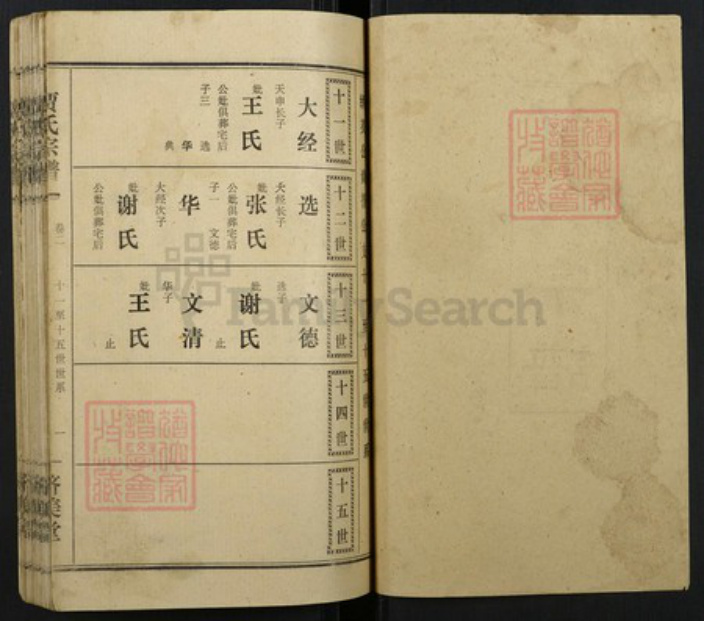 十一世
大经
天申长子
妣王氏
公妣俱葬宅后
子三 选 华 典
十二世
选
大经长子
妣张氏
公妣俱葬宅后
子一 文德
华
大经次子
妣谢氏
公妣俱葬宅后
十三世
文德
选子
妣谢氏
止
文清
华子
妣王氏
止
十四世
十五世
贾氏宗谱
卷二
十一至十五世世系
一
FamilySearch